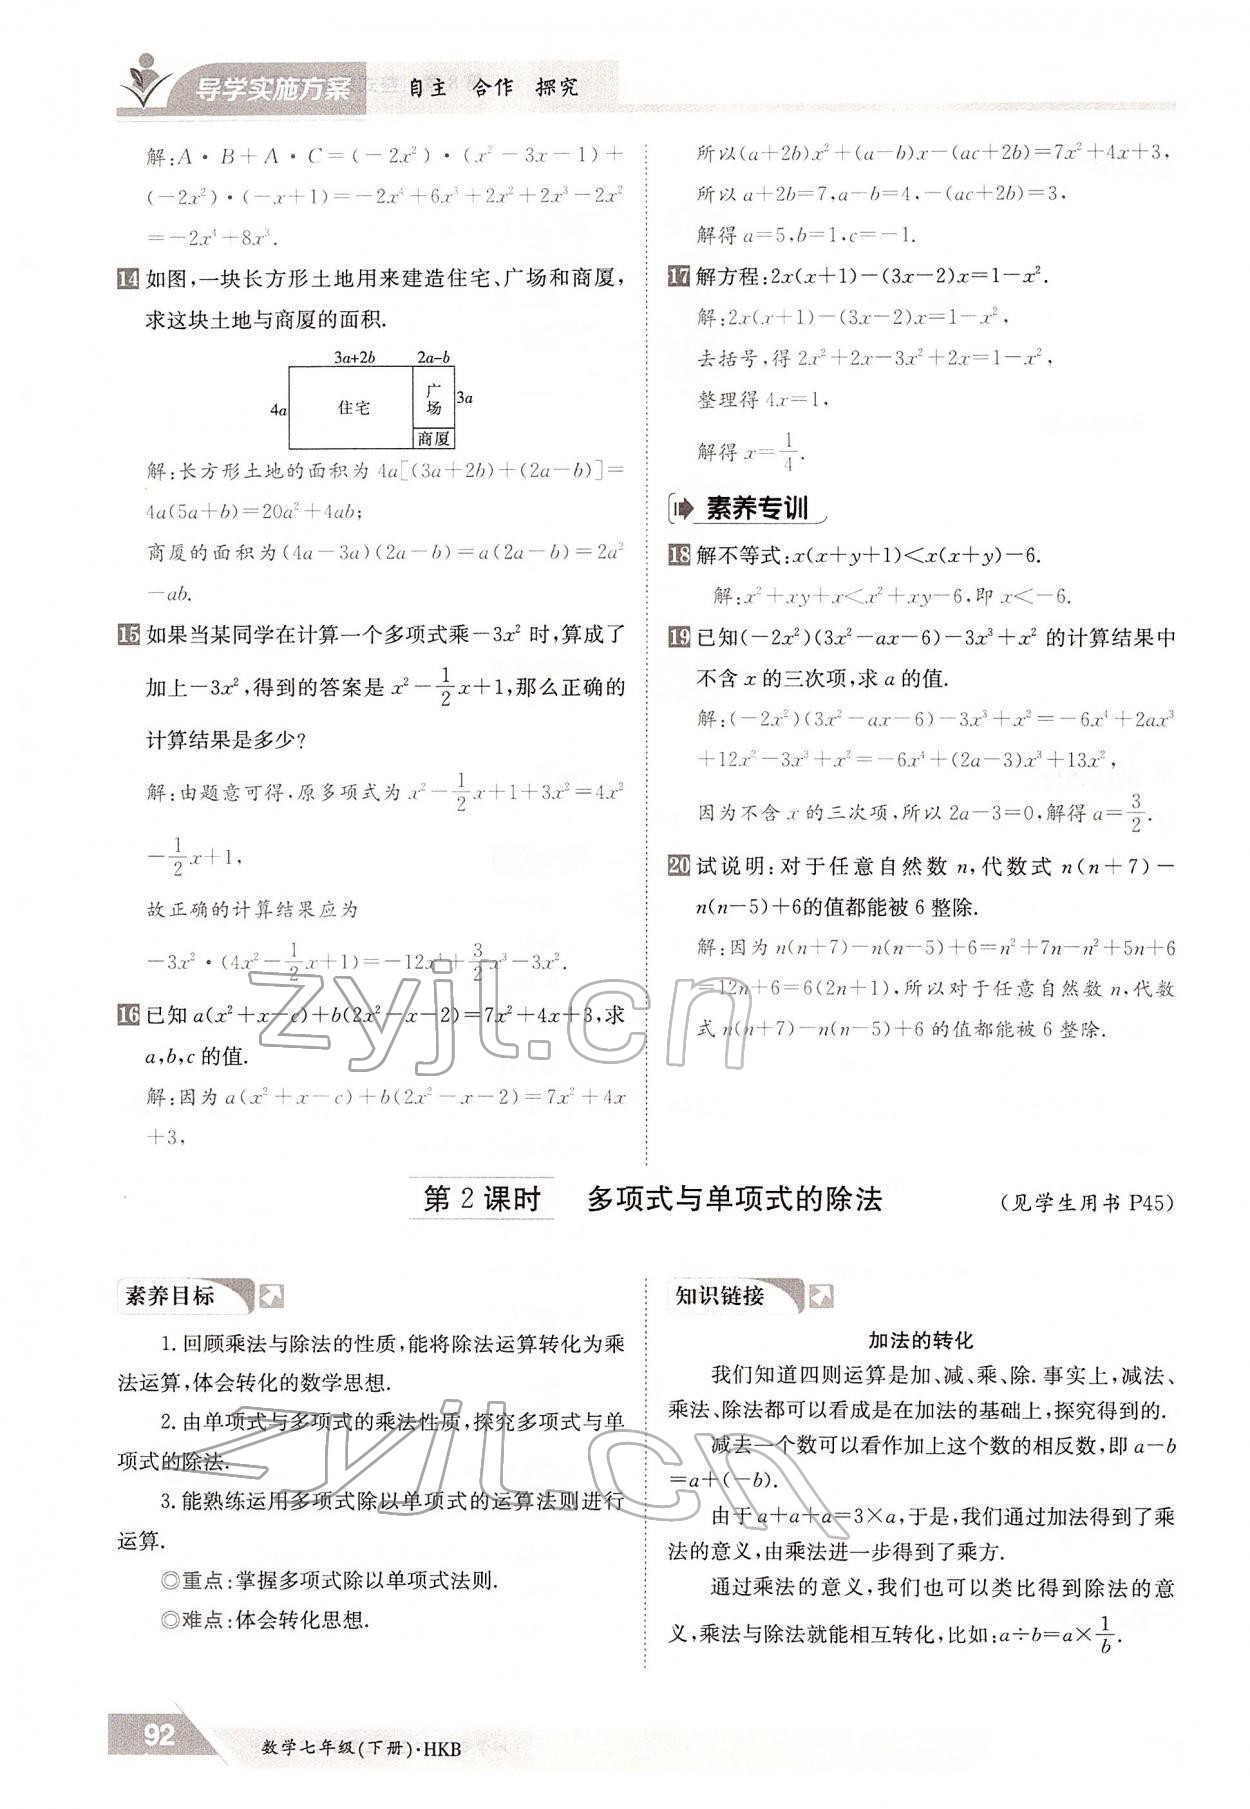 导学实施方案 自主 合作 探究
解:A·B+A·C=(-2x²)·(x²-3x-1)+
(-2x²)·(-x+1)=-2x⁴+6x³+2x²+2x³-2x²
=-2x⁴+8x³.
14 如图,一块长方形土地用来建造住宅、广场和商厦,
求这块土地与商厦的面积.
3a+2b 2a-b
4a 住宅 广场 3a
商厦
解:长方形土地的面积为 4a[(3a+2b)+(2a-b)]=
4a(5a+b)=20a²+4ab;
商厦的面积为(4a-3a)(2a-b)=a(2a-b)=2a²
-ab.
15 如果当某同学在计算一个多项式乘-3x² 时,算成了
加上-3x²,得到的答案是 x²-1/2x+1,那么正确的
计算结果是多少?
解:由题意可得,原多项式为 x²-1/2x+1+3x²=4x²
-1/2x+1,
故正确的计算结果应为
-3x²·(4x²-1/2x+1)=-12x⁴+3/2x³-3x².
16 已知 a(x²+x-c)+b(2x²-x-2)=7x²+4x+3,求
a,b,c 的值.
解:因为 a(x²+x-c)+b(2x²-x-2)=7x²+4x
+3,
所以(a+2b)x²+(a-b)x-(ac+2b)=7x²+4x+3,
所以 a+2b=7,a-b=4,-(ac+2b)=3,
解得 a=5,b=1,c=-1.
17 解方程:2x(x+1)-(3x-2)x=1-x².
解:2x(x+1)-(3x-2)x=1-x²,
去括号,得 2x²+2x-3x²+2x=1-x²,
整理得 4x=1,
解得 x=1/4.
素养专训
18 解不等式:x(x+y+1)<x(x+y)-6.
解:x²+xy+x<x²+xy-6,即 x<-6.
19 已知(-2x²)(3x²-ax-6)-3x³+x² 的计算结果中
不含 x 的三次项,求 a 的值.
解:(-2x²)(3x²-ax-6)-3x³+x²=-6x⁴+2ax³
+12x²-3x³+x²=-6x⁴+(2a-3)x³+13x²,
因为不含 x 的三次项,所以 2a-3=0,解得 a=3/2.
20 试说明:对于任意自然数 n,代数式 n(n+7)-
n(n-5)+6的值都能被 6 整除.
解:因为 n(n+7)-n(n-5)+6=n²+7n-n²+5n+6
=12n+6=6(2n+1),所以对于任意自然数 n,代数
式 n(n+7)-n(n-5)+6 的值都能被 6 整除.
zyjl.cn
第 2 课时 多项式与单项式的除法 (见学生用书 P45)
素养目标
1.回顾乘法与除法的性质,能将除法运算转化为乘
法运算,体会转化的数学思想.
2.由单项式与多项式的乘法性质,探究多项式与单
项式的除法.
3.能熟练运用多项式除以单项式的运算法则进行
运算.
◎重点:掌握多项式除以单项式法则.
◎难点:体会转化思想.
知识链接
加法的转化
我们知道四则运算是加、减、乘、除.事实上,减法、
乘法、除法都可以看成是在加法的基础上,探究得到的.
减去一个数可以看作加上这个数的相反数,即 a-b
=a+(-b).
由于 a+a+a=3×a,于是,我们通过加法得到了乘
法的意义,由乘法进一步得到了乘方.
通过乘法的意义,我们也可以类比得到除法的意
义,乘法与除法就能相互转化,比如:a÷b=a×1/b.
zyjl.cn
92 数学七年级(下册)·HKB